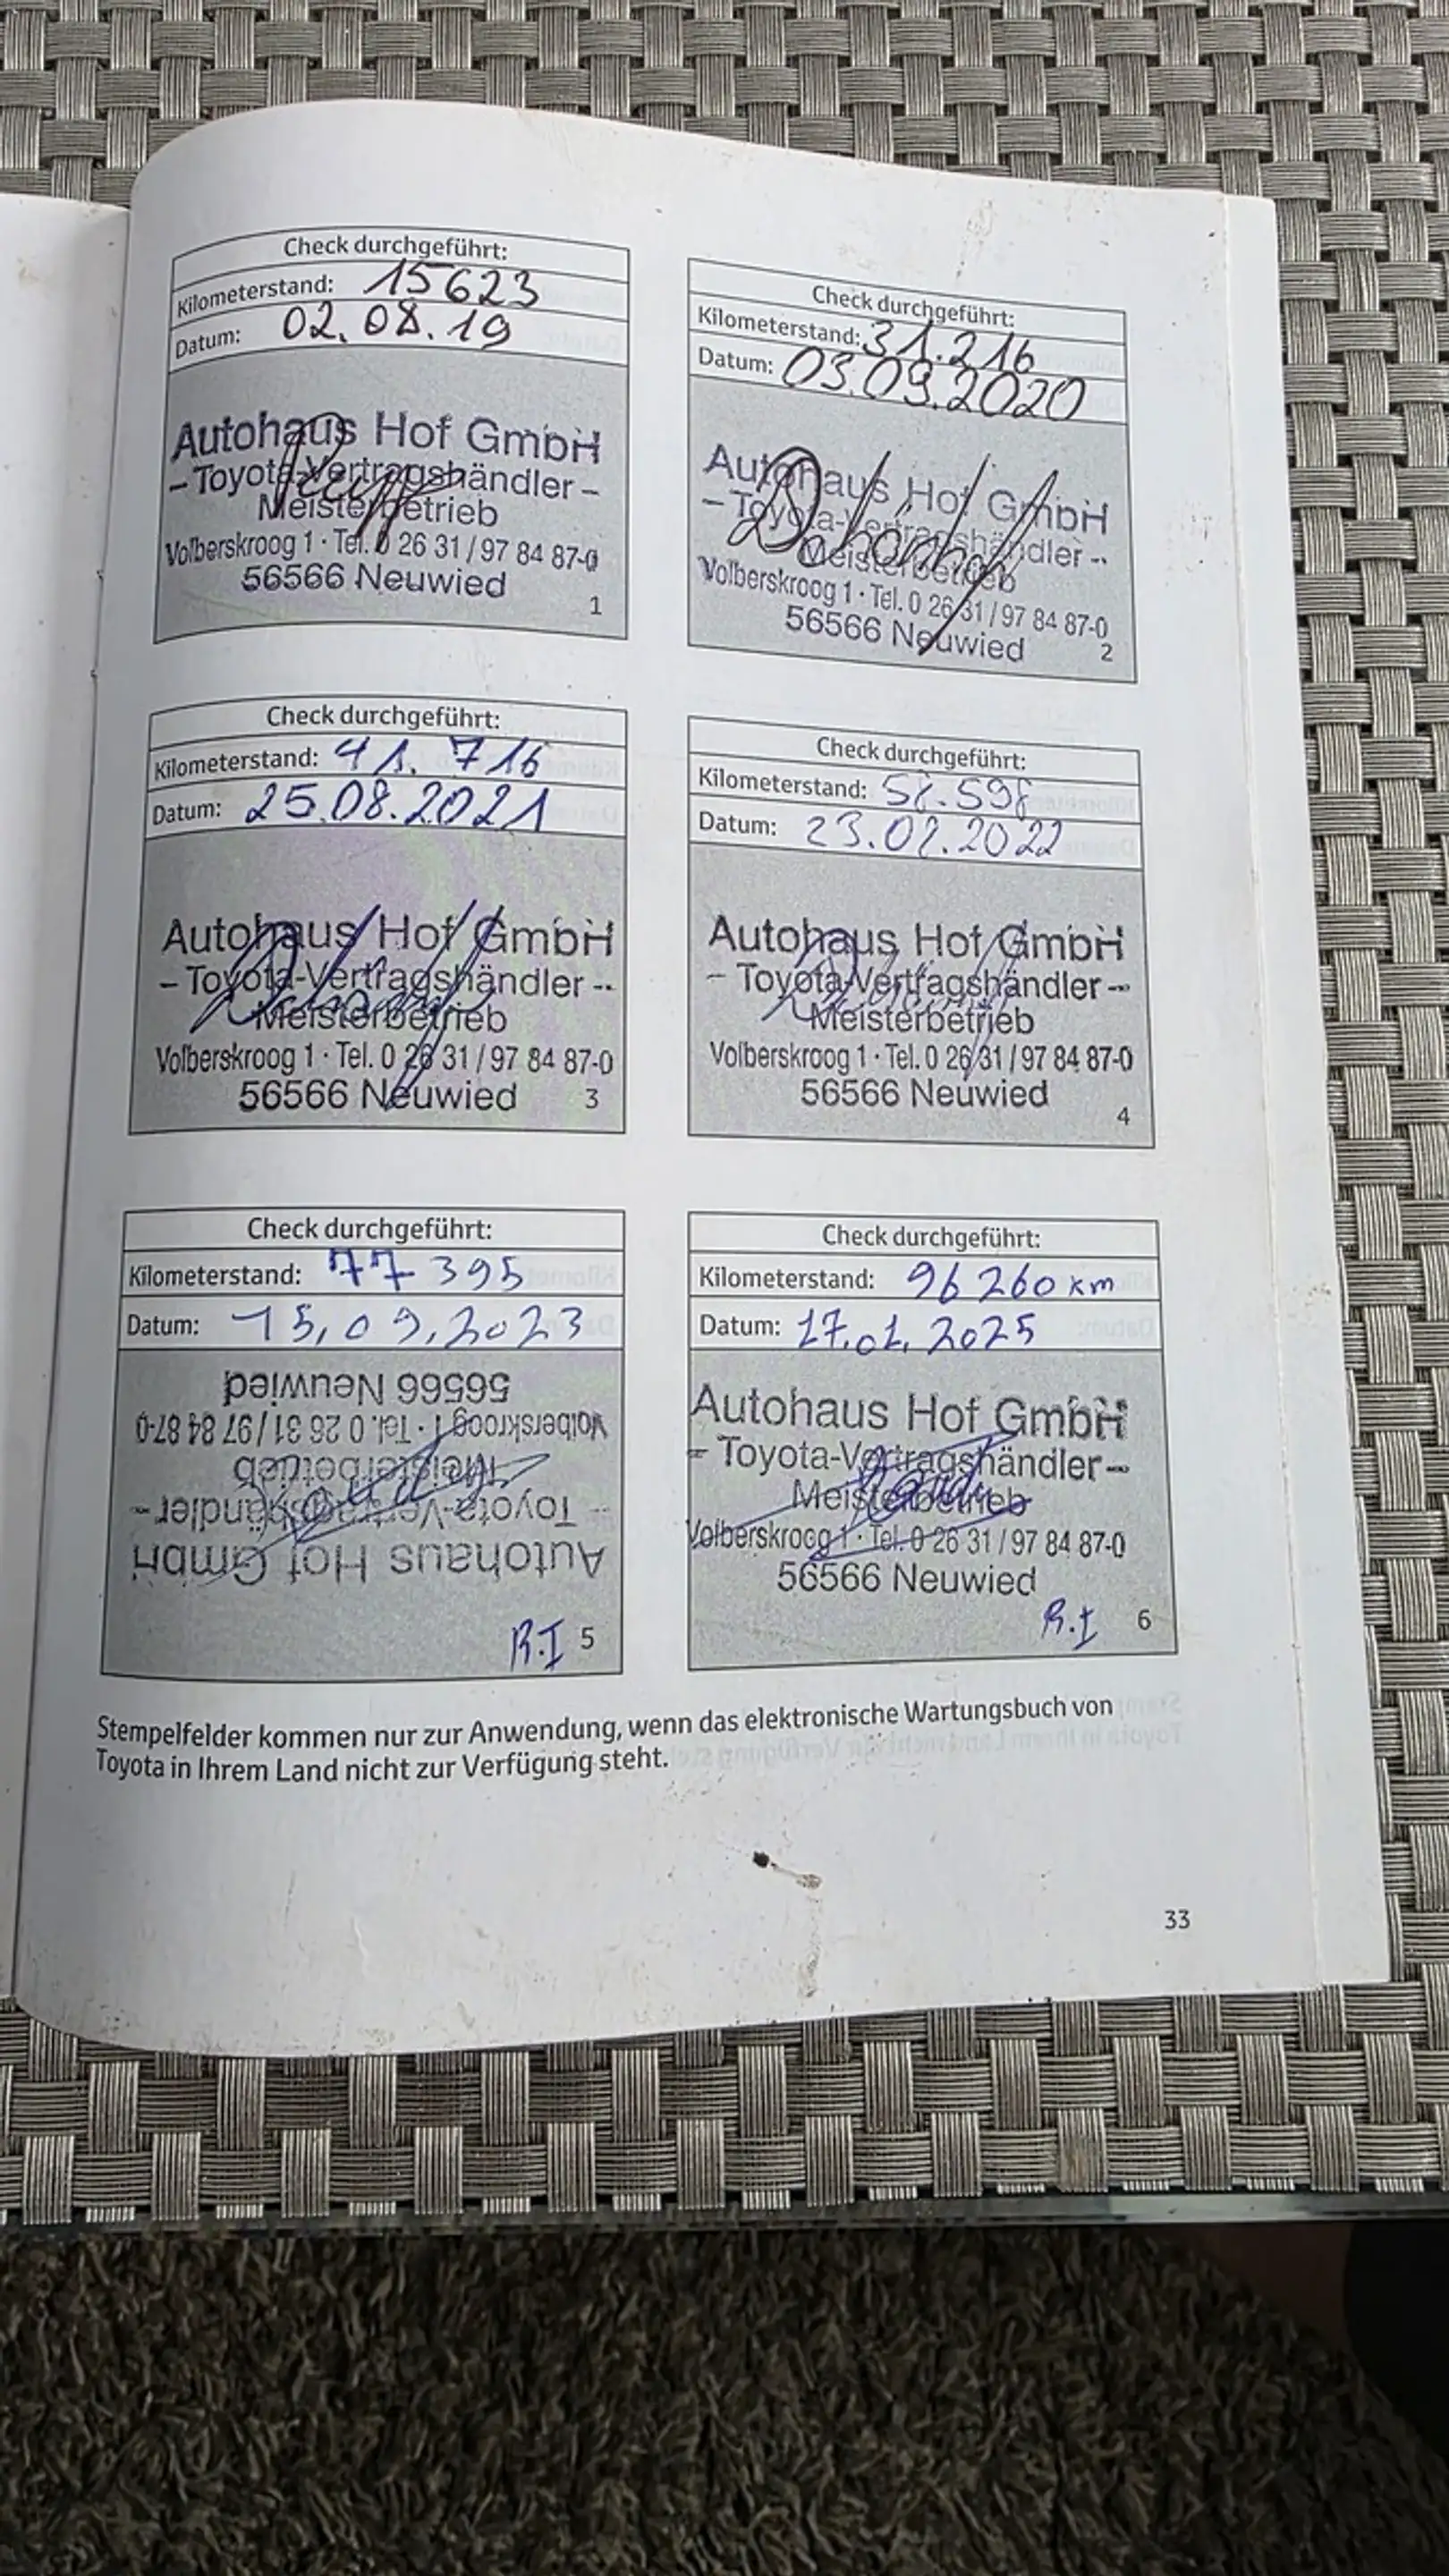 Check durchgeführt:
Kilometerstand: 15623
Datum: 02.08.19
Autohaus Hof GmbH
– Toyota-Vertragshändler –
Meisterbetrieb
Volberskroog 1 · Tel. 0 26 31 / 97 84 87-0
56566 Neuwied
1
Check durchgeführt:
Kilometerstand: 31.216
Datum: 03.09.2020
Autohaus Hof GmbH
– Toyota-Vertragshändler –
Meisterbetrieb
Volberskroog 1 · Tel. 0 26 31 / 97 84 87-0
56566 Neuwied
2
Check durchgeführt:
Kilometerstand: 41.716
Datum: 25.08.2021
Autohaus Hof GmbH
– Toyota-Vertragshändler –
Meisterbetrieb
Volberskroog 1 · Tel. 0 26 31 / 97 84 87-0
56566 Neuwied
3
Check durchgeführt:
Kilometerstand: 58.598
Datum:
Autohaus Hof GmbH
– Toyota-Vertragshändler –
Meisterbetrieb
Volberskroog 1 · Tel. 0 26 31 / 97 84 87-0
56566 Neuwied
4
Check durchgeführt:
Kilometerstand: 77 395
Datum: 15.09.2023
Autohaus Hof GmbH
– Toyota-Vertragshändler –
Meisterbetrieb
Volberskroog 1 · Tel. 0 26 31 / 97 84 87-0
56566 Neuwied
R.I 5
Check durchgeführt:
Kilometerstand: 96 260 km
Datum: 17.01.2025
Autohaus Hof GmbH
– Toyota-Vertragshändler –
Meisterbetrieb
Volberskroog 1 · Tel. 0 26 31 / 97 84 87-0
56566 Neuwied
R.I 6
Stempelfelder kommen nur zur Anwendung, wenn das elektronische Wartungsbuch von
Toyota in Ihrem Land nicht zur Verfügung steht.
33